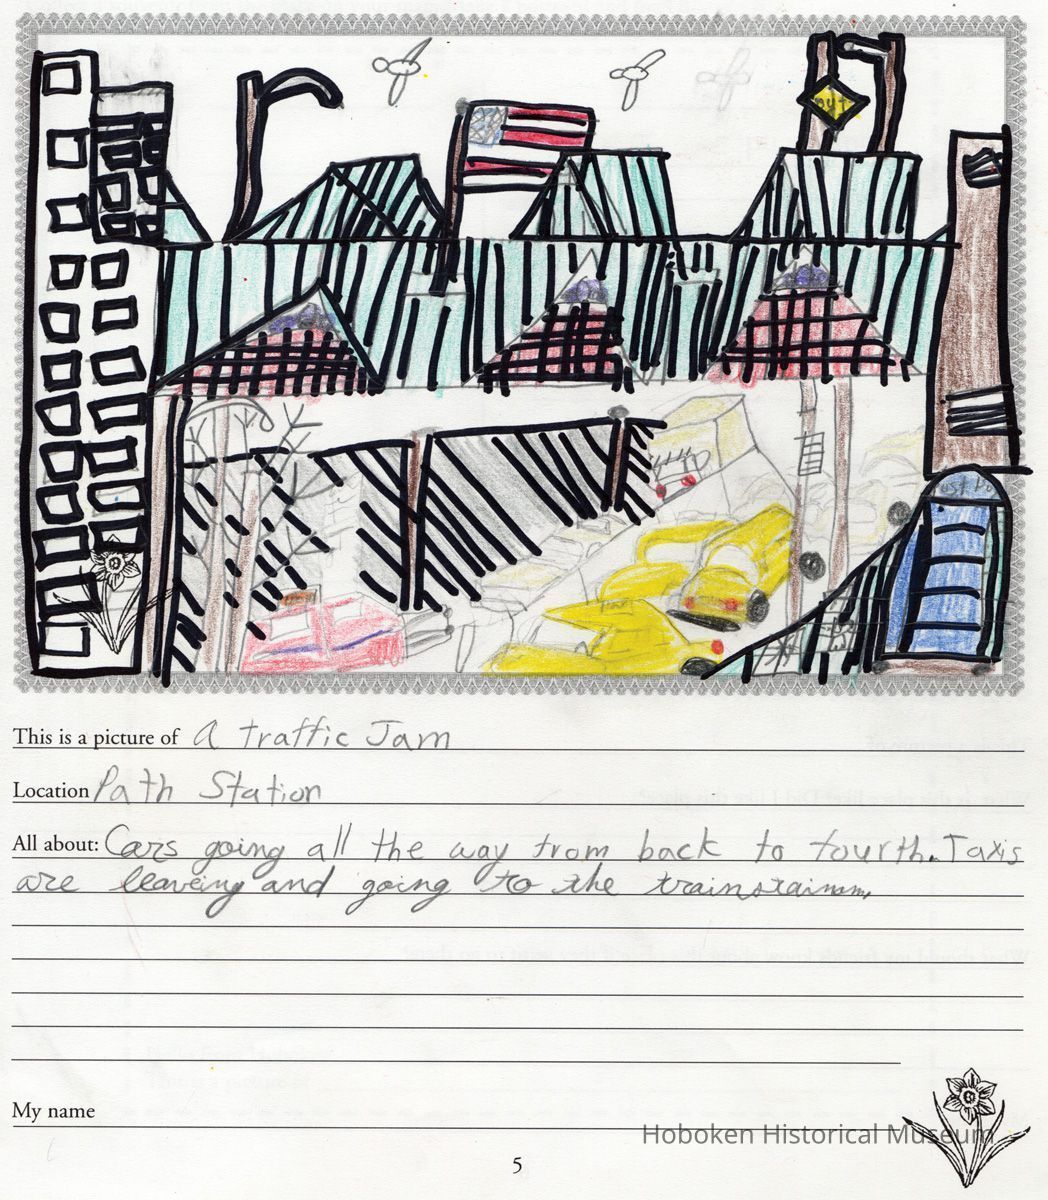 out
This is a picture of a traffic Jam
Location Path Station
All about: Cars going all the way from back to fourth. Taxis
are leaveing and going to the trainstainmm,
My name
Hoboken Historical Museum
5